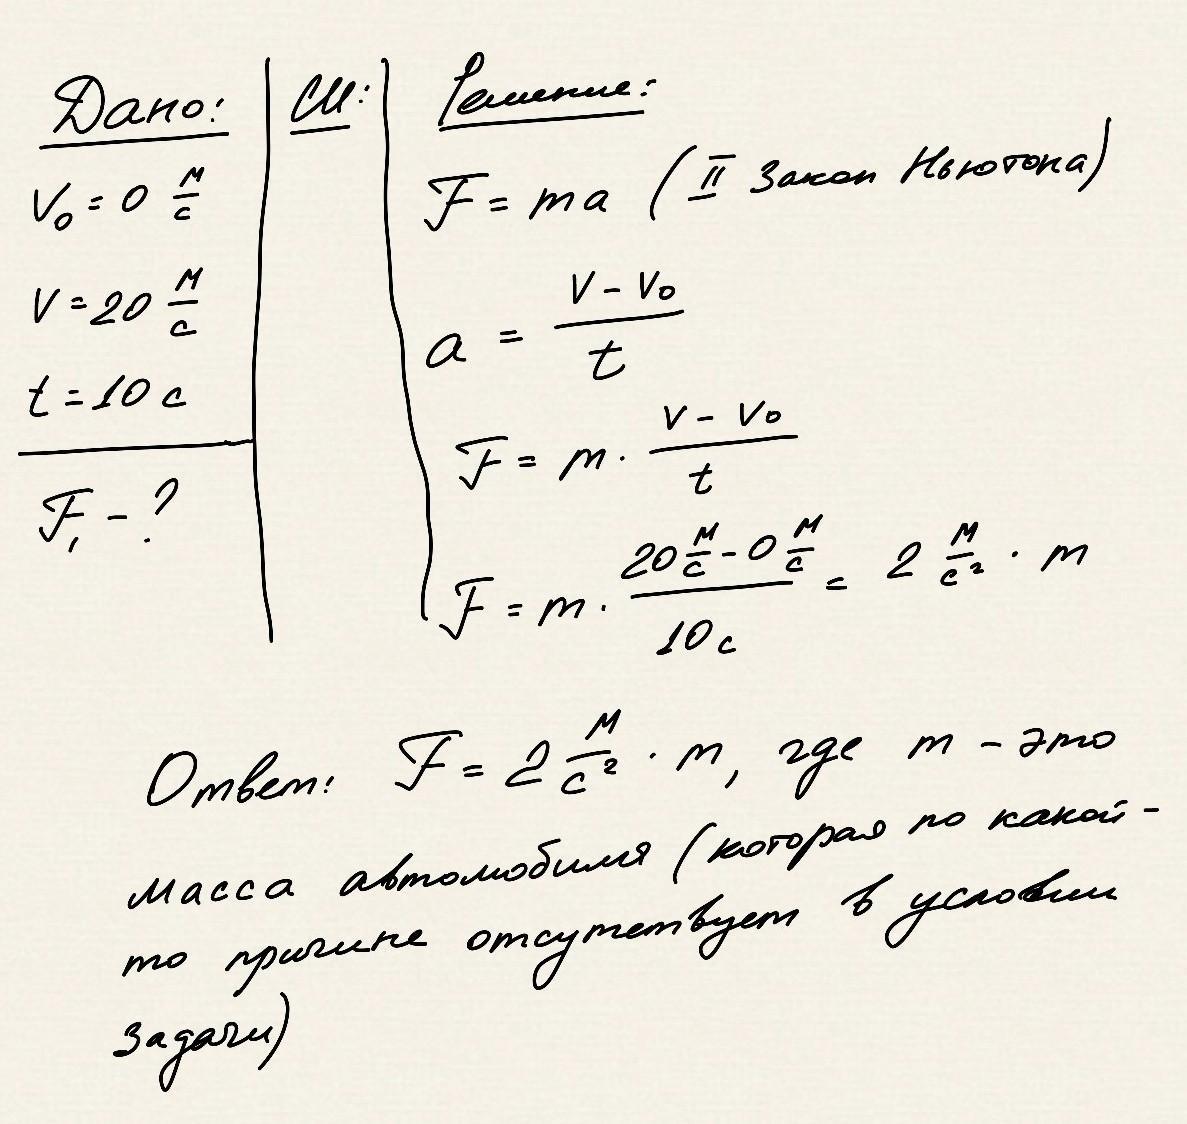 Дано:
V₀ = 0 м/с
V = 20 м/с
t = 10 с
F, - ?
СИ:
Решение:
F = ma (II Закон Ньютона)
a = (V - V₀)/t
F = m · (V - V₀)/t
F = m · (20 м/с - 0 м/с)/10 с = 2 м/с² · m
Ответ: F = 2 м/с² · m, где m - это
масса автомобиля (которая по какой-
то причине отсутствует в условии
задачи)